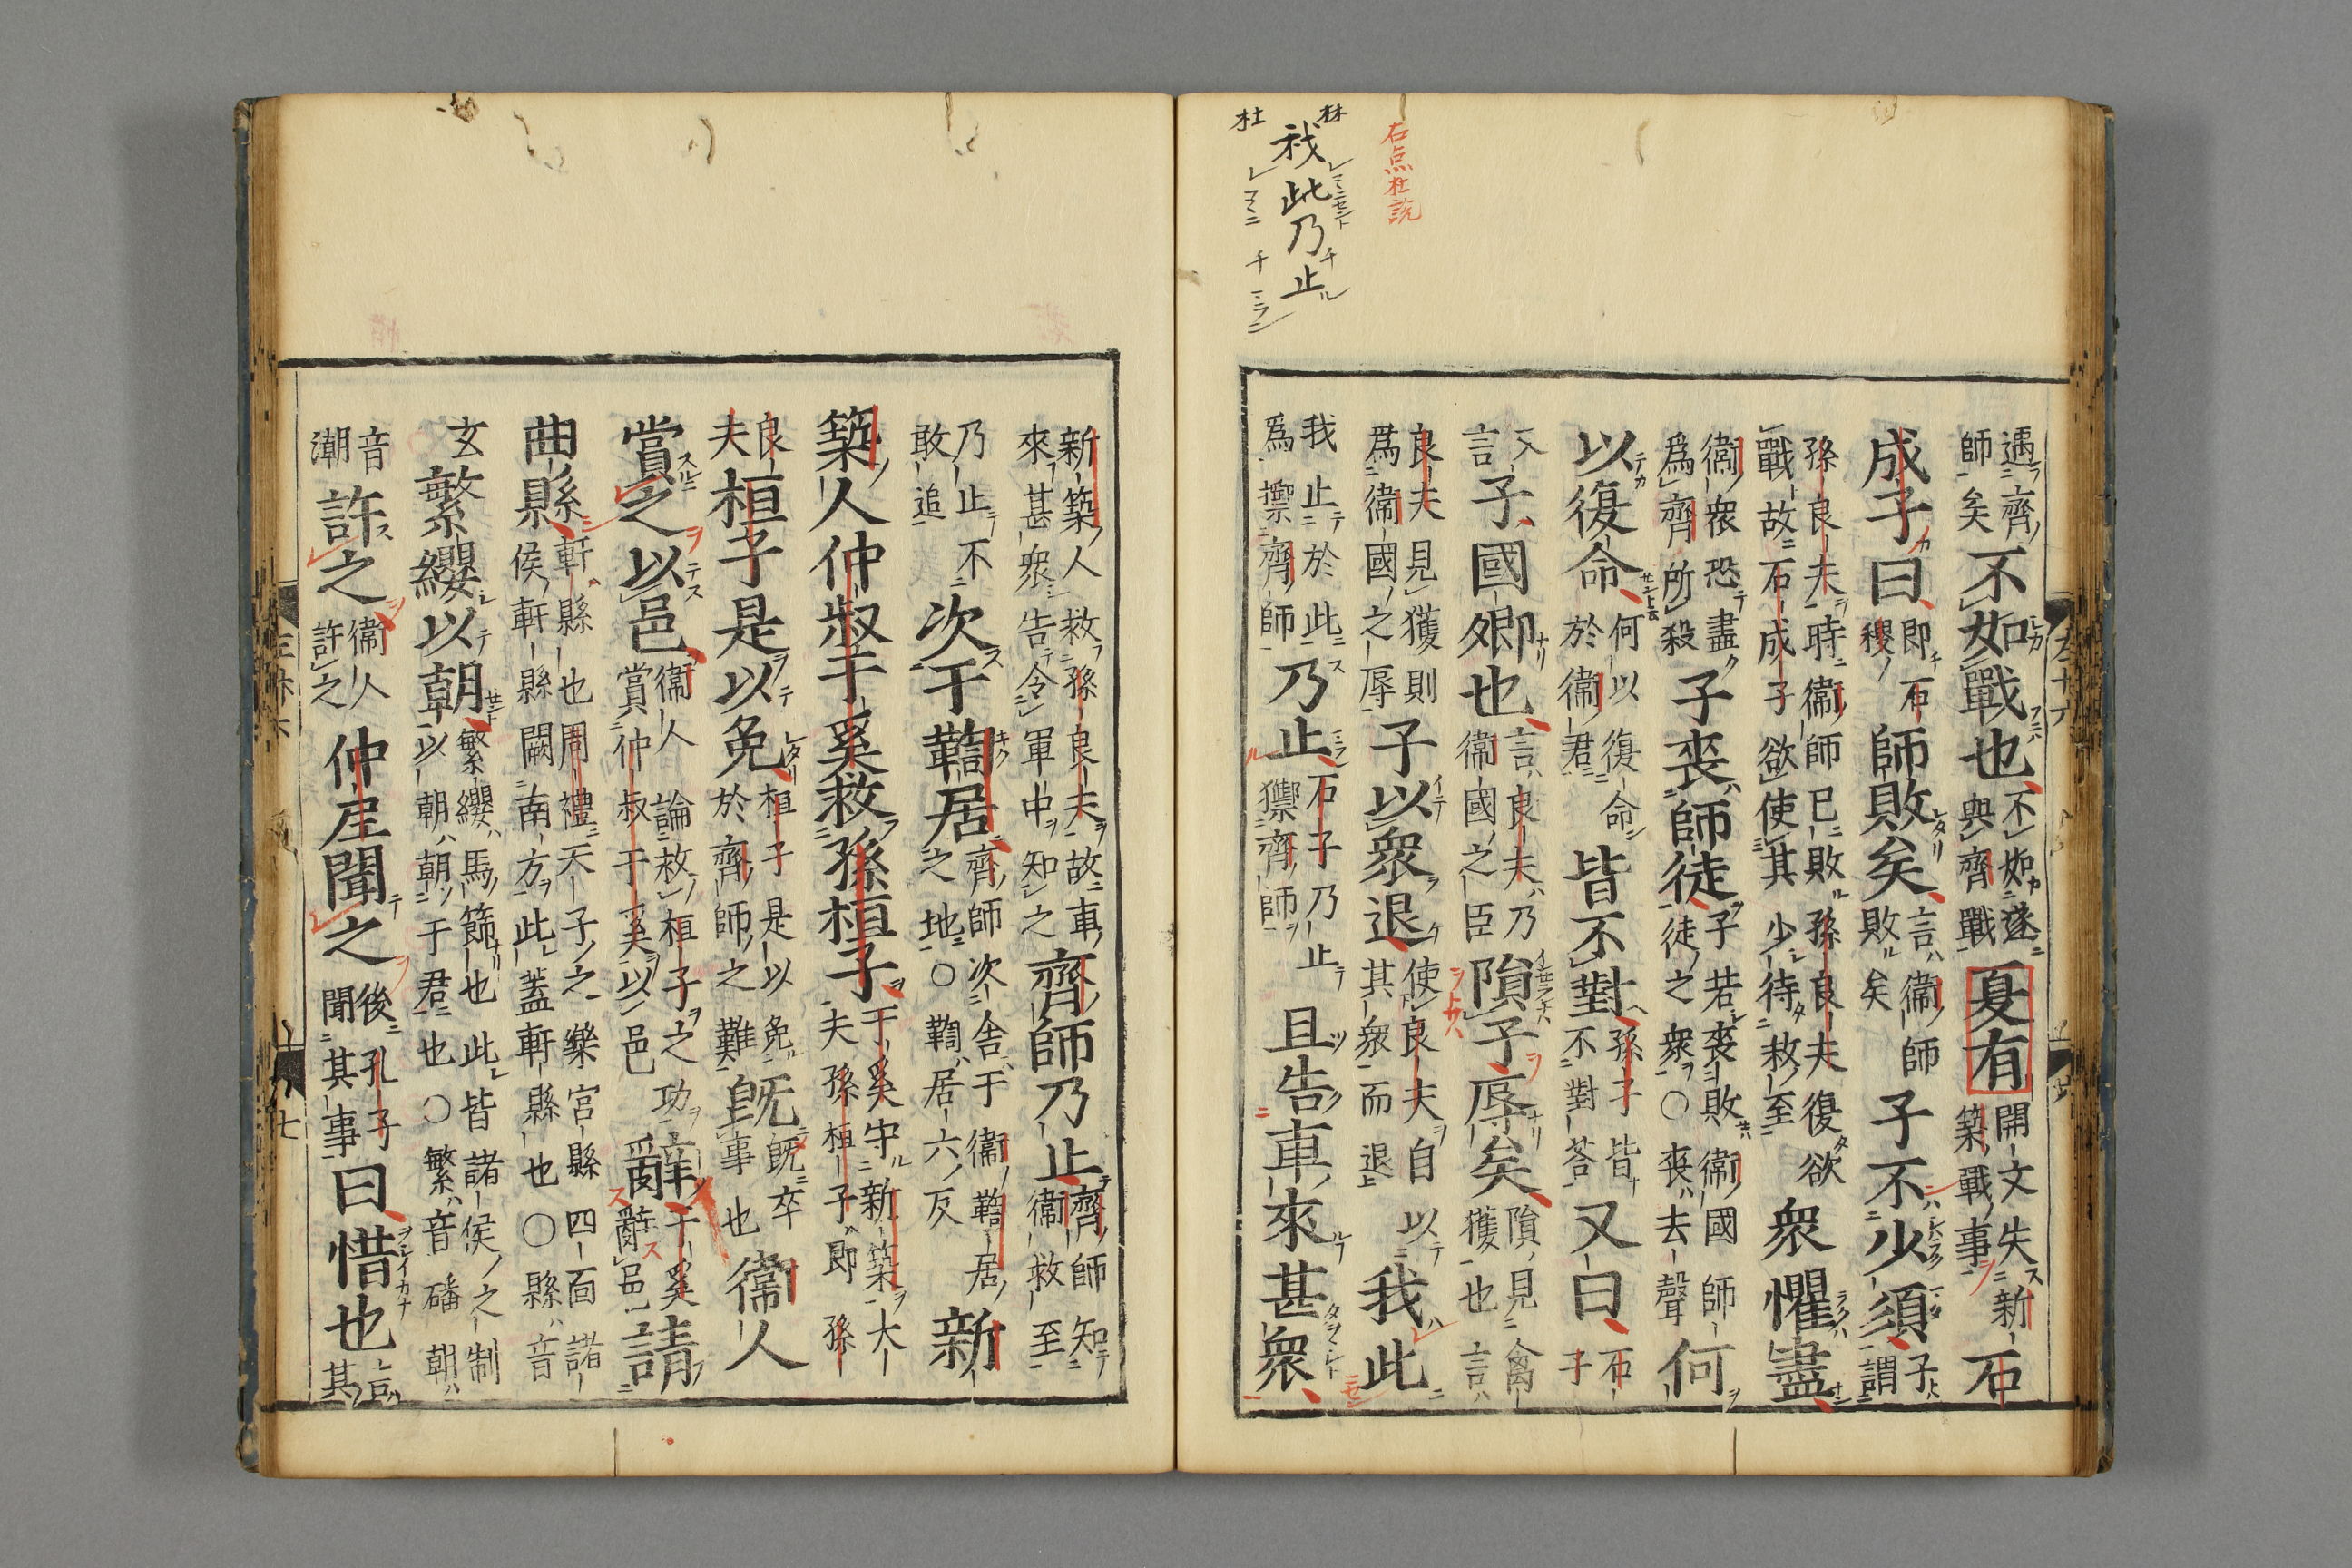 右点杜説
林
我此乃止
杜
遇齊師矣不如戰也不如遂與齊戰夏有開文失新築戰事石
成子曰即石稷師敗矣言衞師敗矣子不少須子謂
孫良夫時衞師已敗孫良夫復欲戰故石成子欲使其少待救至衆懼盡
衞衆恐盡爲齊所殺子喪師徒子若喪敗衞國師徒之衆〇喪去聲何
以復命何以復命於衞君皆不對孫子皆不對荅又曰石子
又言子國卿也言良夫乃衞國之臣隕子辱矣隕見禽獲也言
良夫見獲則爲衞國之辱子以衆退使良夫自其衆而退以我此
我止於此爲禦齊師乃止石子乃止禦齊師且告車來甚衆
新築人救孫良夫故車來甚衆告令軍中知之齊師乃止齊師知衞救至
乃止不敢追次于鞫居齊師次舍于衞鞫居之地〇鞫居六反新
築人仲叔于奚救孫桓子于奚守新築大夫孫桓子即孫
良夫桓子是以免桓子是以免於齊師之難旣旣卒事也衞人
賞之以邑衞人論救桓子之功賞仲叔于奚以邑辭于奚辭邑請
曲縣軒縣也周禮天子之樂宮縣四面諸侯軒縣闕南方此蓋軒縣也〇縣音
玄繁纓以朝繁纓馬飾也此皆諸侯之制以朝朝于君也〇繁音磻朝
音潮許之衞人許之仲尼聞之後孔子聞其事曰惜也言其
七